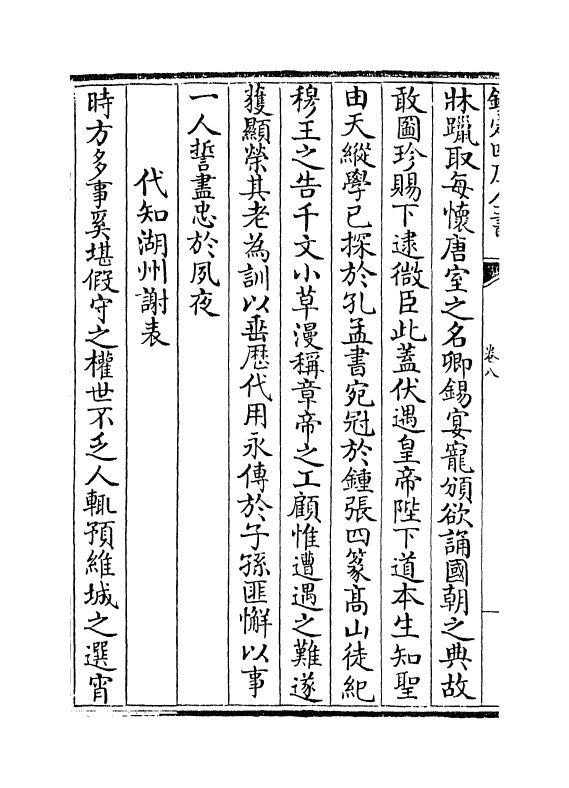 欽定四庫全書
卷八
牀躐取每懷唐室之名卿錫宴寵頒欲誦國朝之典故
敢圖珍賜下逮微臣此蓋伏遇皇帝陛下道本生知聖
由天縱學已探於孔孟書宛冠於鍾張四篆髙山徒紀
穆王之告千文小草漫稱章帝之工顧惟遭遇之難遂
獲顯榮其老為訓以垂歴代用永傳於子孫匪懈以事
一人誓盡忠於夙夜
代知湖州謝表
時方多事奚堪假守之權世不乏人輒預維城之選宵